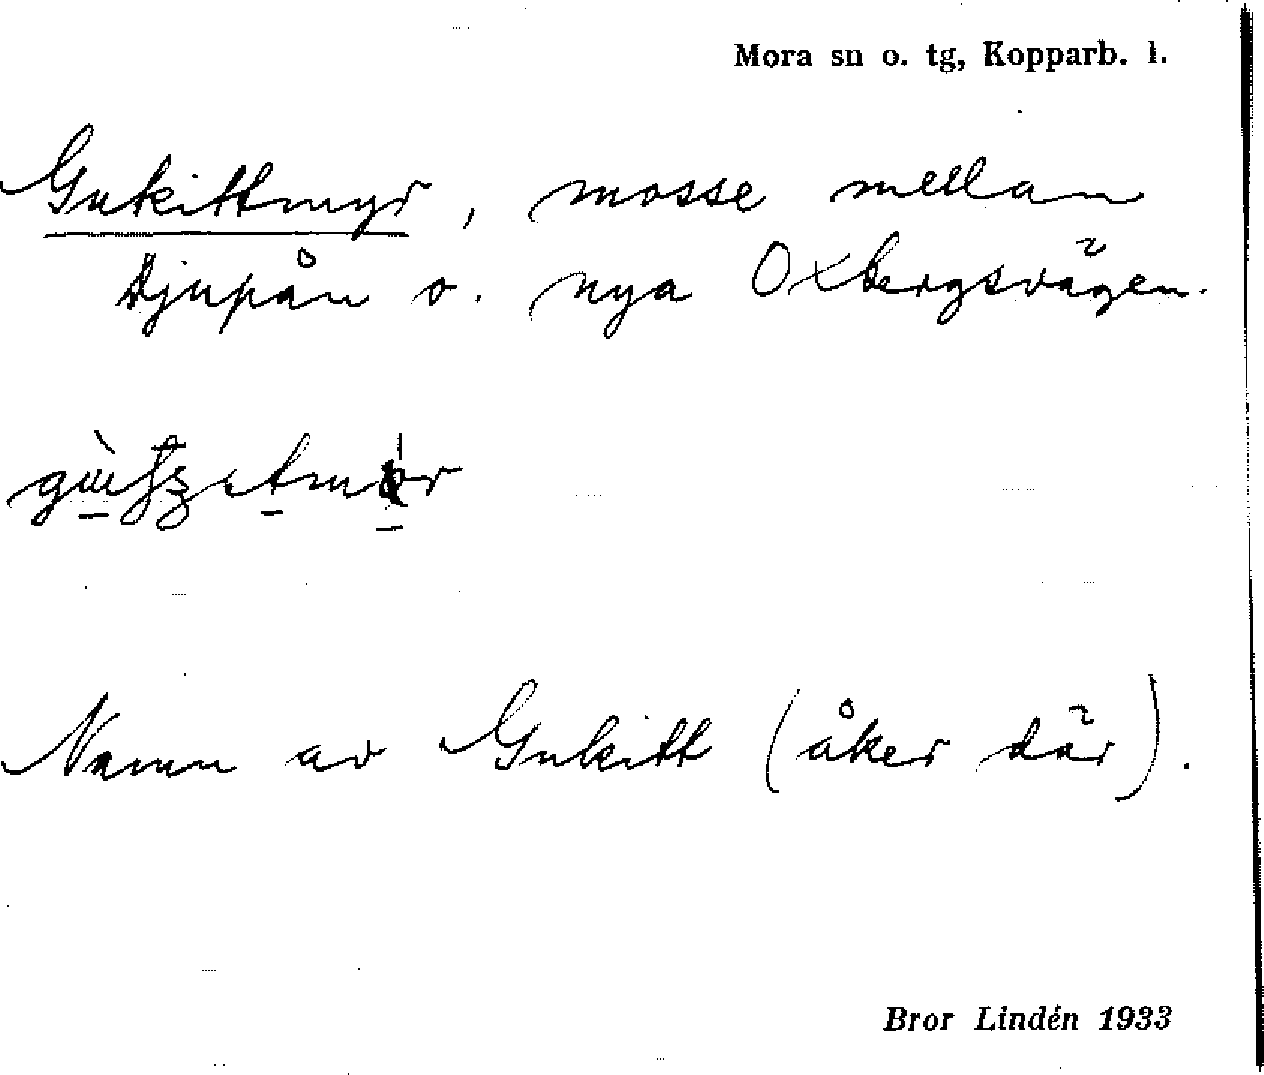 Mora sn o. tg, Kopparb. l.
Gukittmyr, mosse mellan
Djupån o. nya Oxbergsvägen.
Namn av Gukitt (åker där).
Bror Lindén 1933